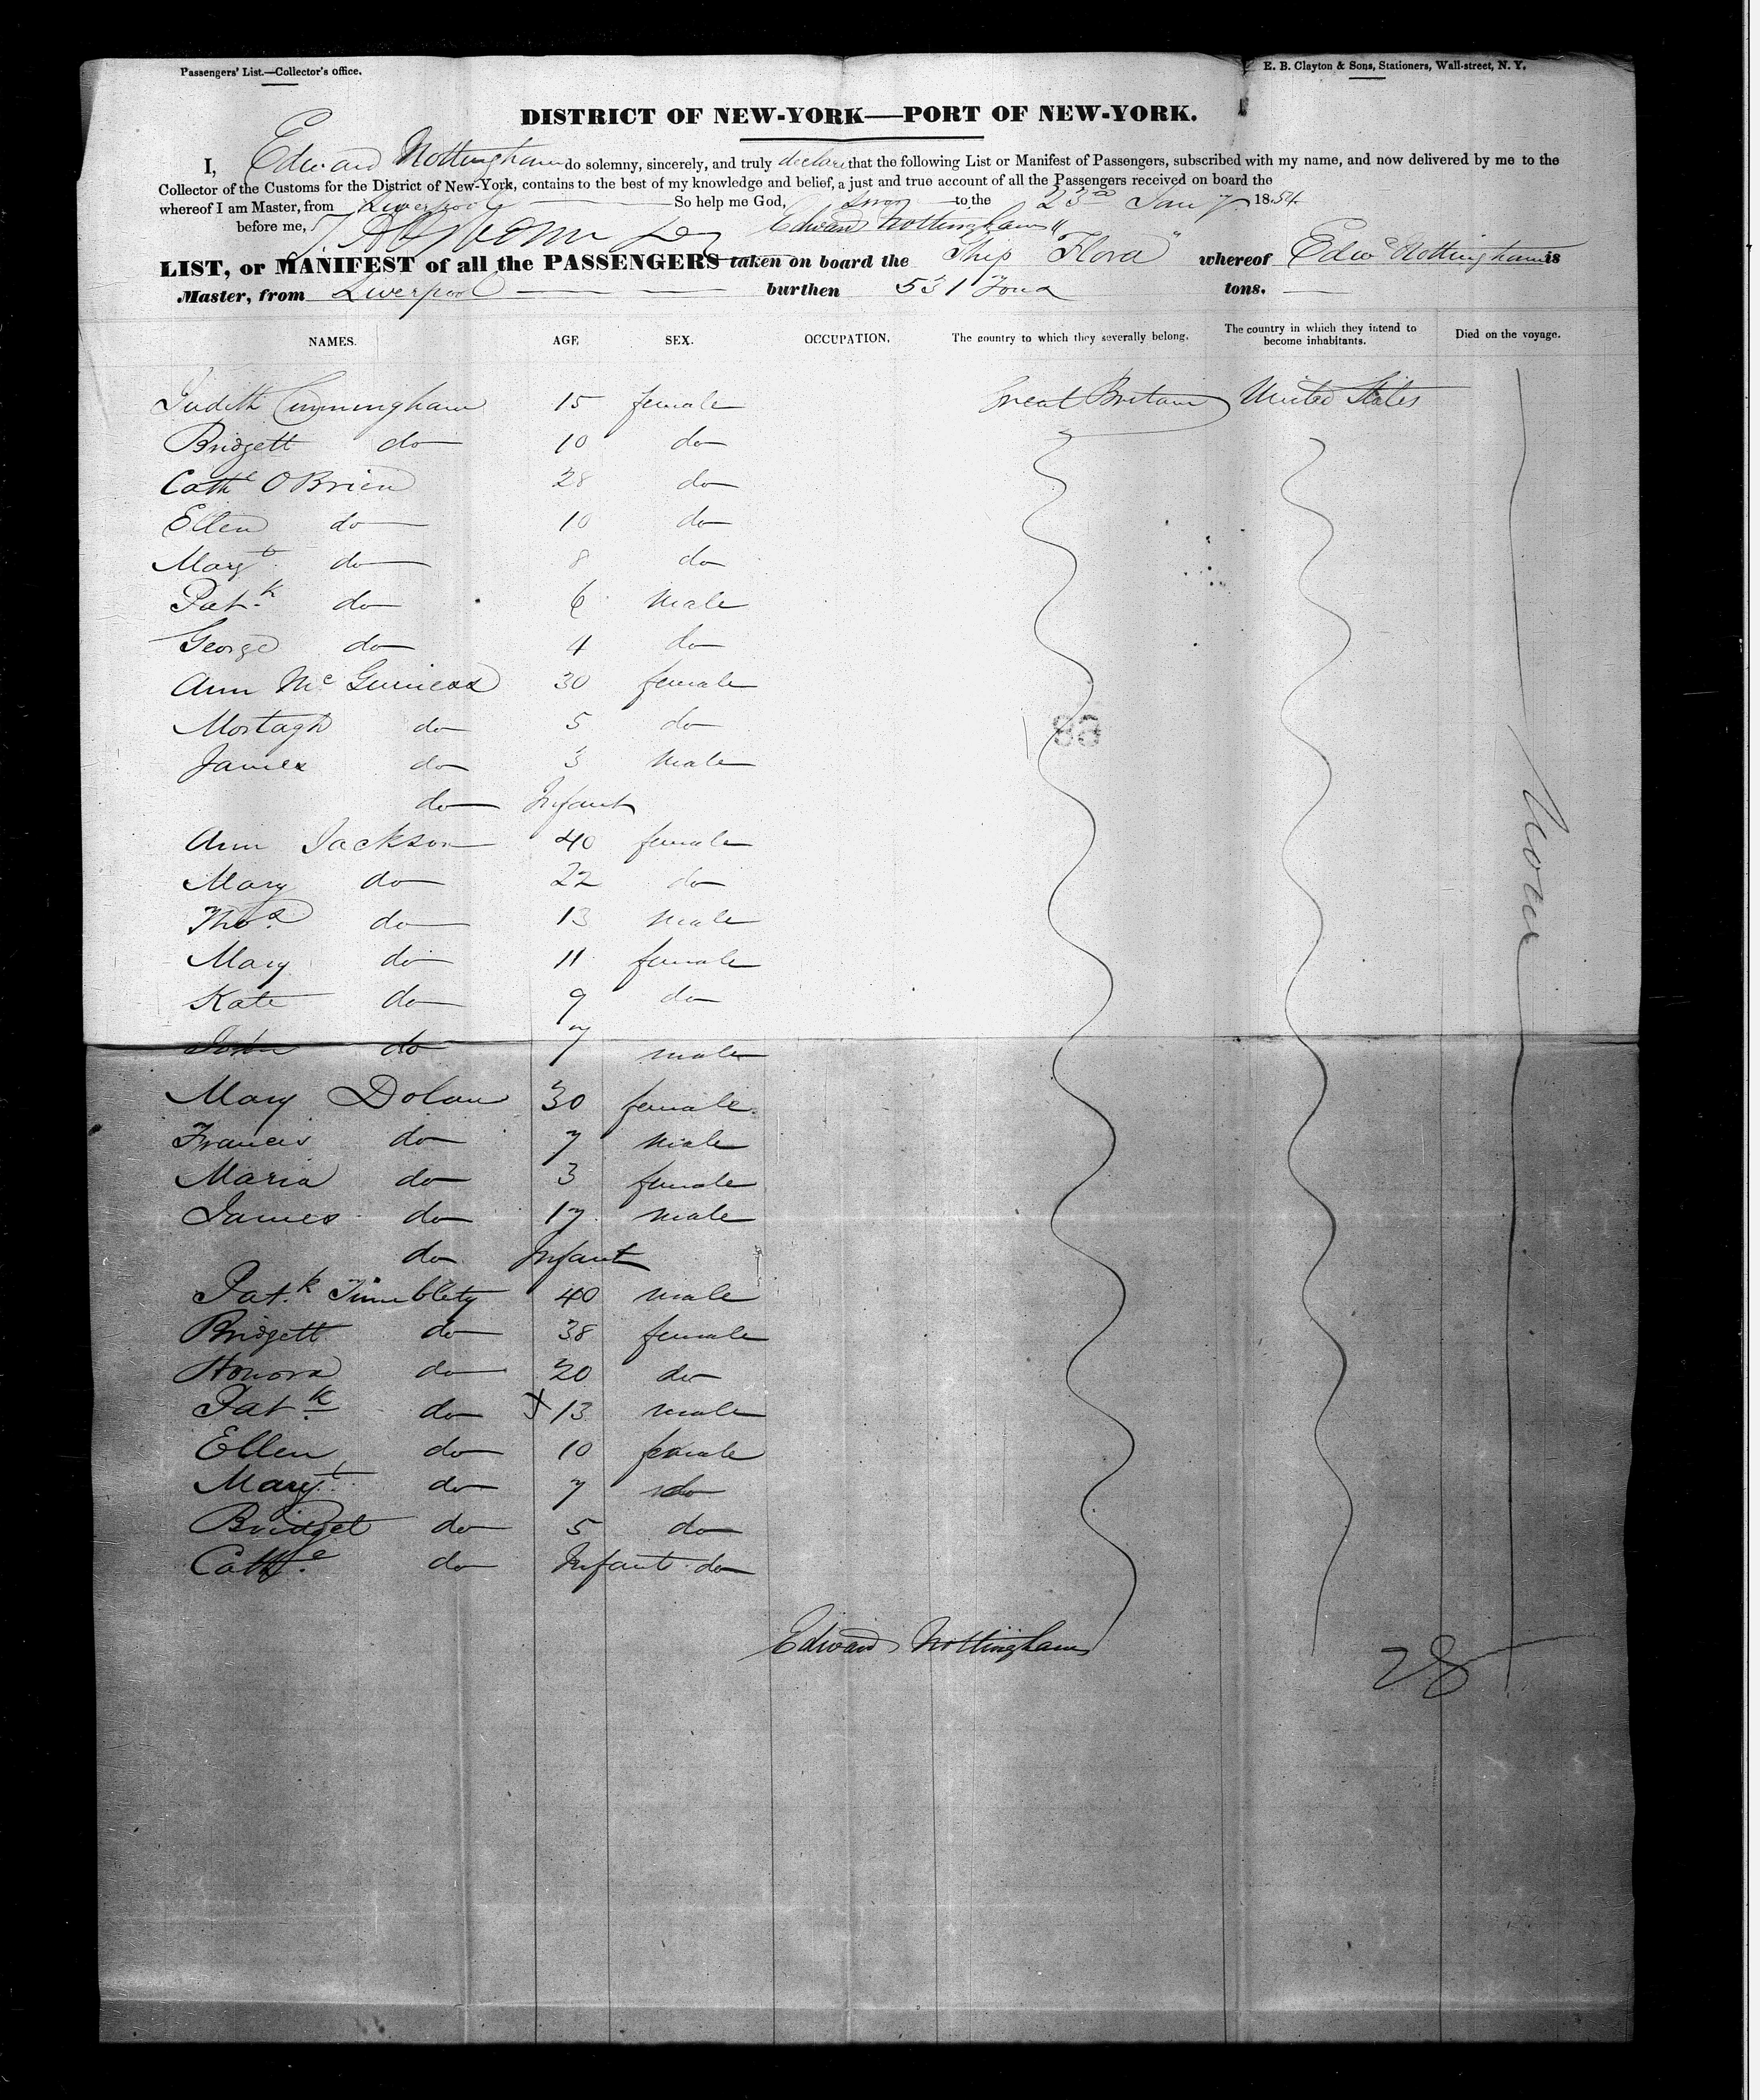 Passengers' List.—Collector's office.
E. B. Clayton & Sons, Stationers, Wall-street, N. Y.
DISTRICT OF NEW-YORK—PORT OF NEW-YORK.
I, Edward Nottingham do solemny, sincerely, and truly declare that the following List or Manifest of Passengers, subscribed with my name, and now delivered by me to the
Collector of the Customs for the District of New-York, contains to the best of my knowledge and belief, a just and true account of all the Passengers received on board the
whereof I am Master, from Liverpool So help me God, to the 23rd Jany 1854
before me, Edward Nottingham
LIST, or MANIFEST of all the PASSENGERS taken on board the Ship "Flora" whereof Edwd Nottingham is
Master, from Liverpool burthen 531 Tons tons.
NAMES. AGE SEX. OCCUPATION. The country to which they severally belong. The country in which they intend to become inhabitants. Died on the voyage.
Judith Cunningham 15 female Great Britain United States
Bridgett do 10 do
Cathe O Brien 28 do
Ellen do 10 do
Margt do 8 do
Patk do 6 male
George do 4 do
Ann Mc Guiness 30 female
Mortagh do 5 do
James do 3 male
do Infant
Ann Jackson 40 female
Mary do 22 do
Thos do 13 male
Mary do 11 female
Kate do 9 do
John do 7 male
Mary Dolan 30 female
Francis do 7 male
Maria do 3 female
James do 17 male
do Infant
Patk Timblety 40 male
Bridgett do 38 female
Honora do 20 do
Patk do X 13 male
Ellen do 10 female
Margt do 7 do
Bridget do 5 do
Cathe do Infant do
None
Edward Nottingham
28